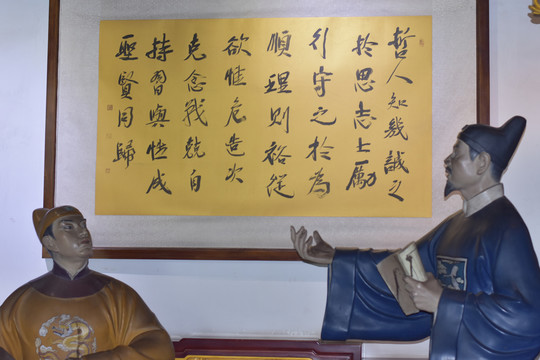 哲人知幾誠之
於思志士勵
行守之於為
順理則裕從
欲惟危造次
克念戰兢自
持習與性成
聖賢同歸